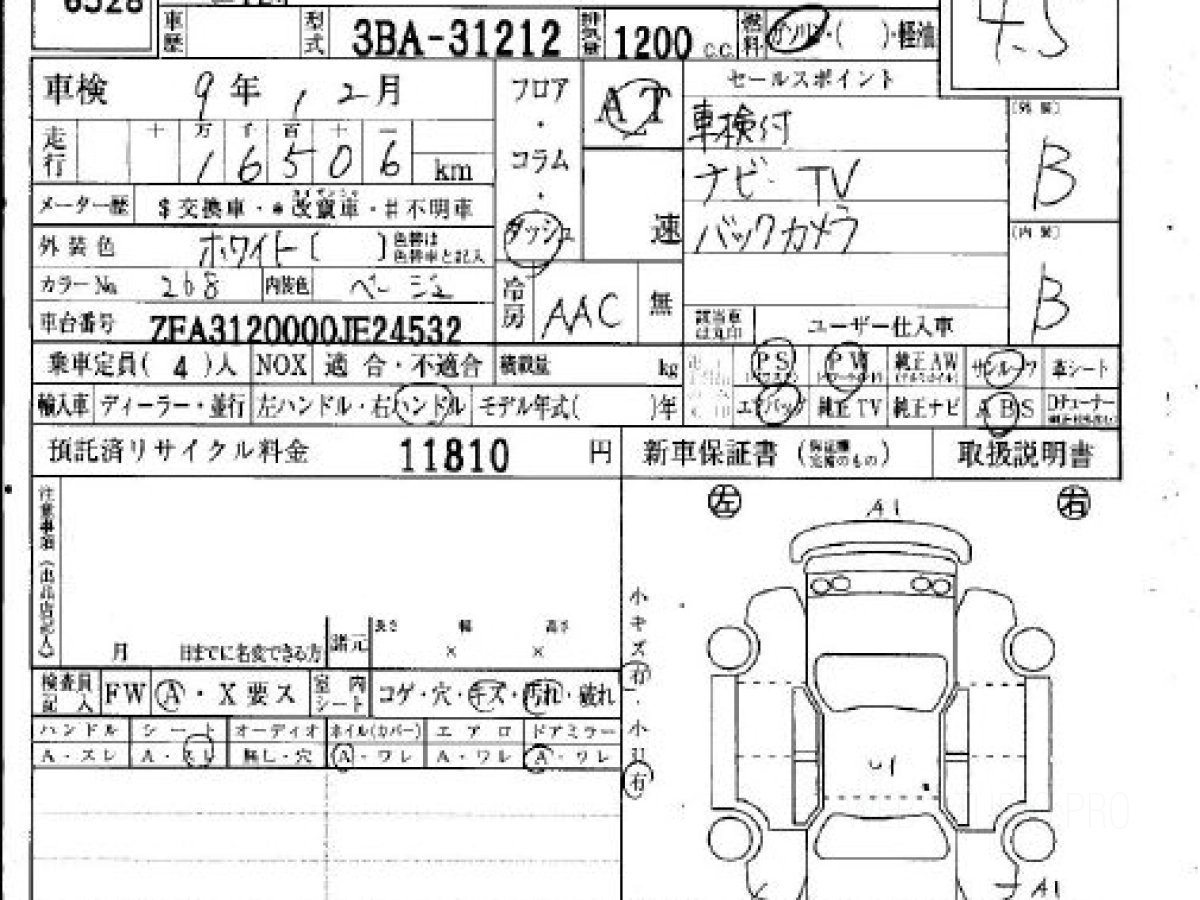 6528
車歴 型式 3BA-31212 排気量 1200 C.C. 燃料 ガソリン・( )・軽油
4.5
車検 9年12月 フロア・コラム・ダッシュ AT 速 セールスポイント
車検付
[外装] B
走行 十 万 千 百 十 一
16506 km
ナビ・TV
メーター歴 $交換車・*改竄車・#不明車
バックカメラ
外装色 ホワイト( ) 色替は色替車と記入
[内装] B
カラーNo. 268 内装色 ベージュ
冷房 AAC 無
車台番号 ZFA3120000JE24532
該当車は丸印 ユーザー仕入車
乗車定員( 4 )人 NOX 適合・不適合 積載量 kg
PS PW 純正AW サンルーフ 革シート
輸入車 ディーラー・並行 左ハンドル・右ハンドル モデル年式( )年
エアバッグ 純正TV 純正ナビ ABS Dチューナー
預託済リサイクル料金 11810 円 新車保証書 (保証書完備のもの) 取扱説明書
注意事項(出品店記入)
左 A1 右
月 日までに名変できる方 諸元 長さ × 幅 × 高さ
小キズ有・小凹有
検査員記入 FW A・X要ス 室内シート コゲ・穴・キズ・汚れ・破れ
ハンドル シート オーディオ ホイル(カバー) エアロ ドアミラー
A・スレ A・スレ 無し・穴 A・ワレ A・ワレ A・ワレ
U1
PRO
A1